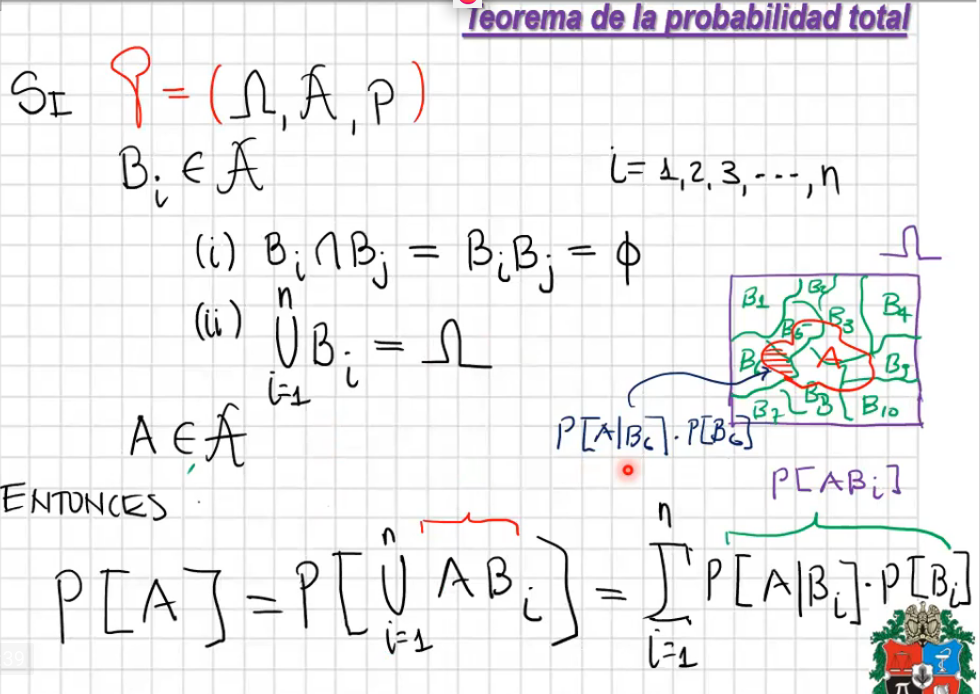 Teorema de la probabilidad total
SI 𝒫 = (Ω, Ã, P)
Bi ∈ Ã
i = 1, 2, 3, ..., n
(i) Bi ∩ Bj = BiBj = ϕ
(ii) n ∪ i=1 Bi = Ω
Ω
B1 B2 B3 B4
B5
B6 A B9
B7 B8 B10
A ∈ Ã
P[A|B6] · P[B6]
P[ABi]
ENTONCES
P[A] = P[ n ∪ i=1 ABi ] = n Σ i=1 P[A|Bi] · P[Bi]
39